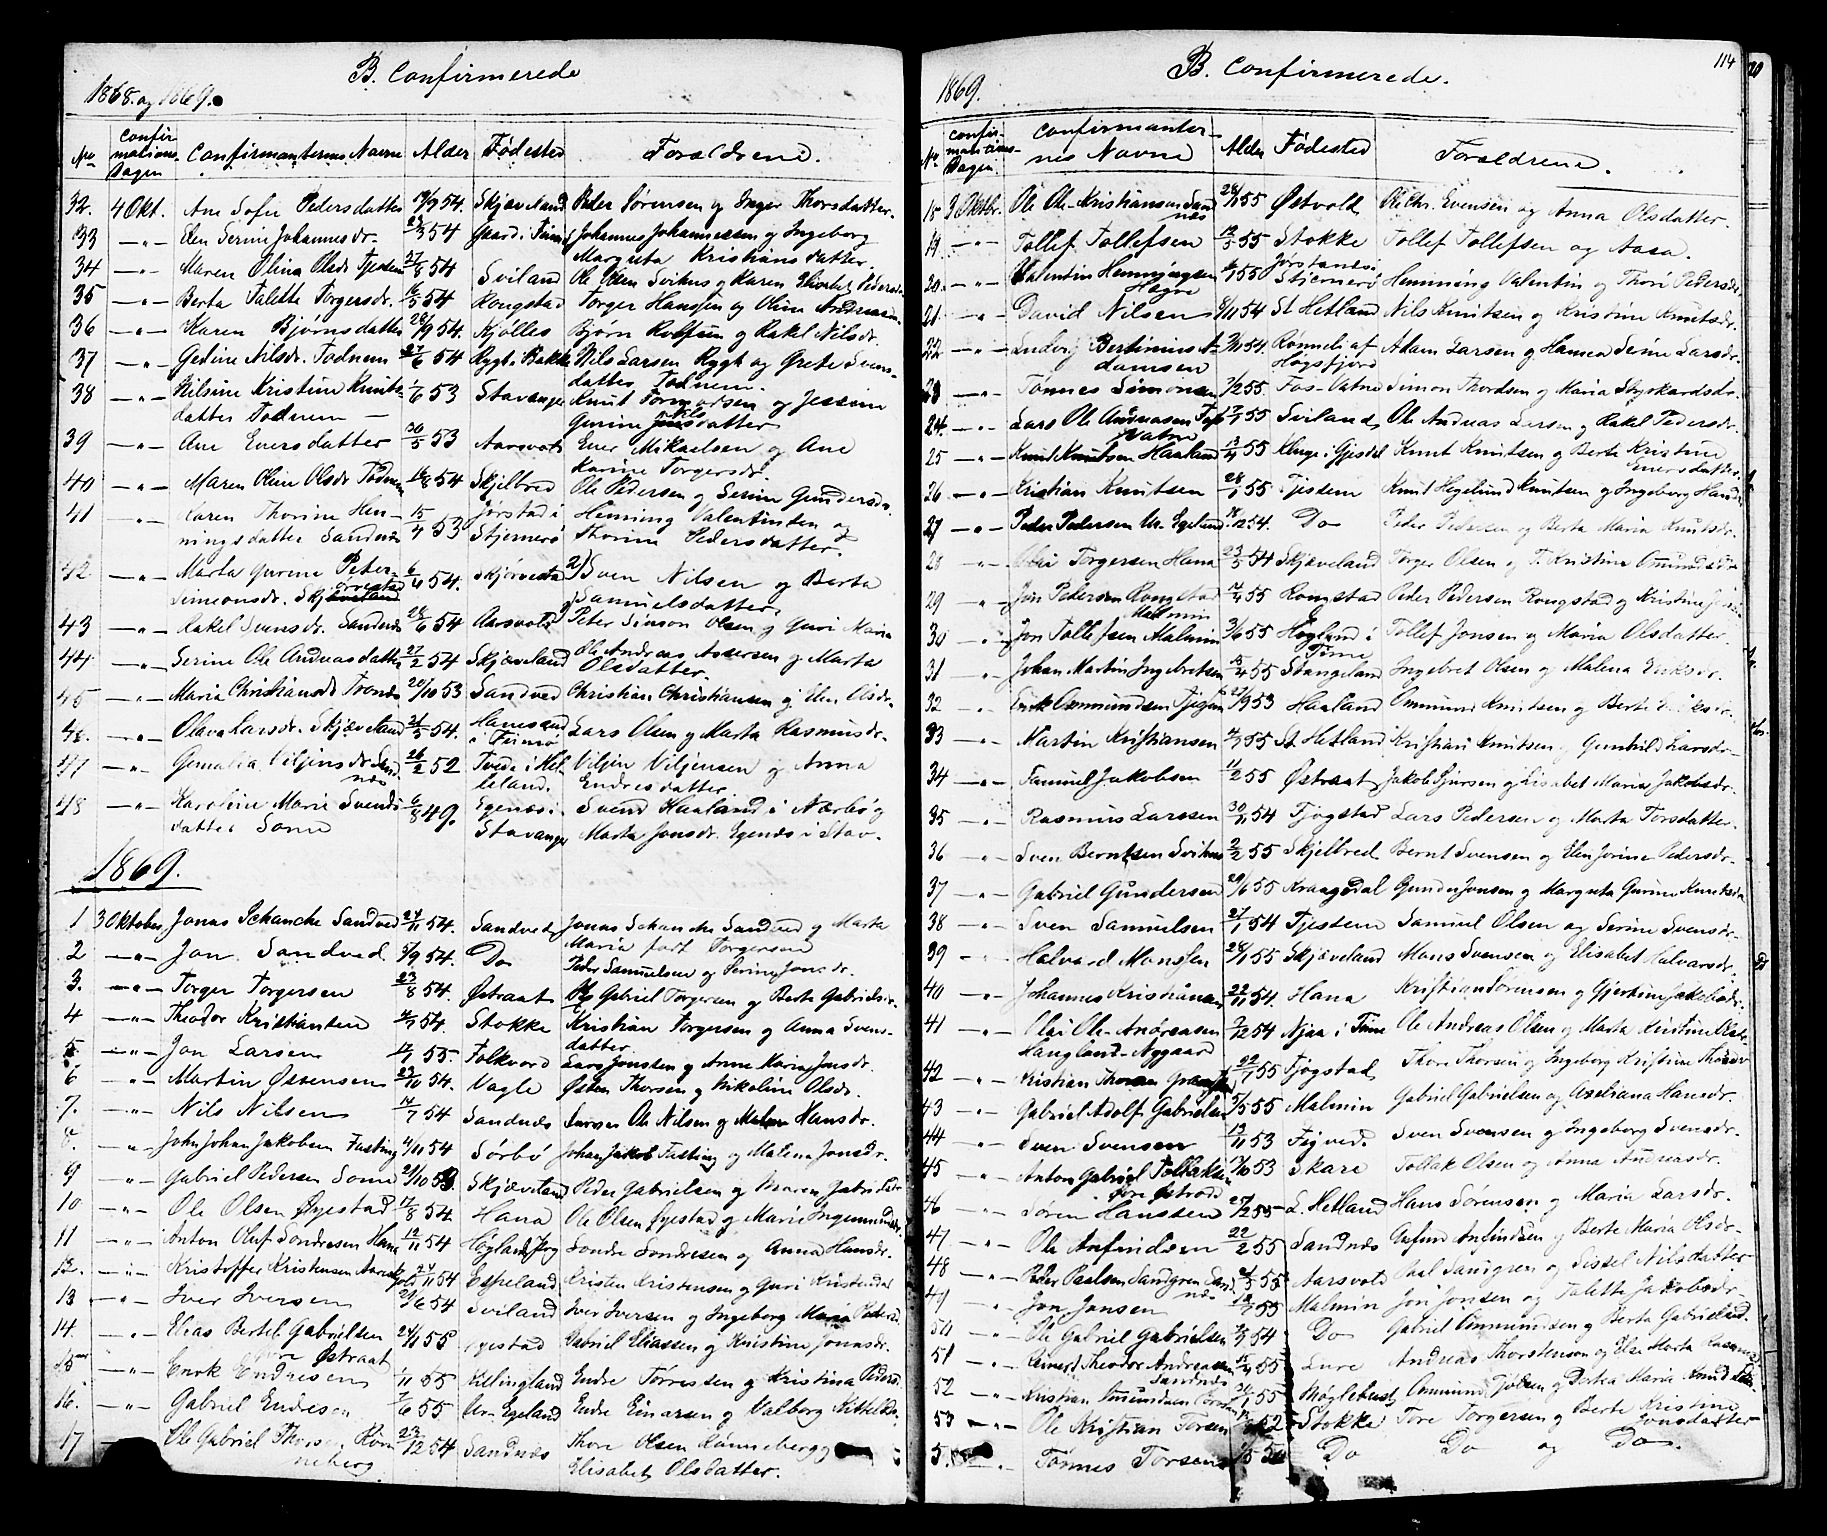 B. Confirmerede
1868. og 1869.
No Confirmations Dagen Confirmanternes Navne Alder Fødested Forældrene.
32. 4 Okt. Ane Sofie Pedersdatter 19/9 54. Skjæveland Peder Sørensen og Inger Thorsdatter.
33 —"— Elen Serine Johannesdr. 23/3 54 Johannes Johannessen og Ingeborg
Margreta Kristiansdatter.
34 —"— Maren Olina Olsdr Tjessem 27/8 54 Sviland Ole Olsen Svihus og Karen Elisabet Pedersdr
35 —"— Berta Talette Torgersdr. 16/5 54 Rongstad Torger Hansen og Oline
36 —"— Karen Bjørnsdatter 28/9 54. Kjølles Bjørn og Rakel Nilsdr.
37 —"— Gedine Nilsdr. Todnem 27/6 54 Rygh Bakke Nils Larsen Rygh og Grete Svens-
datter Todnem.
38 —"— Nilsine Kristine Knuts- 1/6 53 Stavanger Knut Tormodsen og Jessine
datter Todnem — Gurine Nilsdatter
39 —"— Ane Enersdatter 30/5 53 Aarsvold Ener Mikaelsen og Ane
Karine Torgersdr.
40 —"— Maren Oline Olsdr Todnem 16/8 54 Skjelbred Ole Pedersen og Serine Gundersdr.
41 —"— Karen Thorine Hen- 15/4 53 Jørstad i Henning Valentinsen og
ningsdatter Sandnæs Stjernerø Thorine Pedersdatter.
42 —"— Marta Gurine Peter- 6/4 54. Skjørvestad Sven Nilsen og Berta
Simeonsdr. Skjæveland Samuelsdatter.
43 —"— Rakel Svensdr. Sandnæs 28/6 54 Aarsvold Peter Simon Olsen og Guri Maria
44 —"— Serine Ole Andreasdatter 27/2 54 Skjæveland Ole Andreas Assersen og Marta
Olsdatter.
45 —"— Maria Christiansdr Tronæs 20/10 53 Sandved Christian Christiansen og Elen Olsdr.
46. —"— Olava Larsdr. Skjæveland 21/5 54. Lars Olsen og Marta Rasmusdr.
47 —"— Viljensdr Sand- 26/2 52 Tvede i Hel- Viljen Viljensen og Anna
næs leland. Endresdatter
48 —"— Karoline Marie Svends- 6/8 49. Egenæs i Svend Haaland i Nærbø og
datter Soma Stavanger Marta Jonsdr. Egenæs i Stav.
1869.
1 3 Oktober Jonas Schanche Sandved 27/11 54. Sandved Jonas Schanche Sandved og Marta
Maria født Torgersen
2 —"— Jon Sandved 5/9 54. Do Peder Samuelsen og Jonsdr.
3. —"— Torger Torgersen 23/8 54. Østraat Gabriel Torgersen og Berte Gabrielsdr.
4 —"— Theodor Kristiansen 4/7 54. Stokke Kristian Torgersen og Anna Svens-
datter
5 —"— Jon Larsen 17/1 55. Folkvord Lars Jonssen og Anne Karine Jonsdr.
6 —"— Martin Østensen 23/10 54. Vagle Østen Thorsen og Nikoline Olsdr.
7. —"— Nils Nilsen 14/7 54 Sandnæs Ole Nilsen og Malene Hansdr.
8. " John Johan Jakobsen Fasting 4/10 54 Sørbø Johan Jakob Fasting og Malena Jonsdr.
9 " Gabriel Pedersen Soma 21/10 53. Skjæveland Peder Gabrielsen og Maren Gabrielsdr
10 " Ole Olsen Øyestad 17/8 54 Hana Ole Olsen Øyestad og Marie
11 —"— Anton Oluf Sondresen Hana 12/11 54 Høyland Jorg Sondre Sondresen og Anna Hansdr.
12. —"— Kristoffer Kristensen 24/11 54 Espeland Kristen Kristensen og Guri Kristensdr
13 —"— Iver Iversen 21/6 54 Sviland Iver Iversen og Ingeborg Maria Pedersd.
14. —"— Elias Bertel Gabrielsen 24/1 55 Øyestad Gabriel Eliassen og Kristine Jonasdr.
Østraat
15 —"— Enok Endresen 1/11 55 Killingland Endre Torresen og Kristina Pedersd.
16. —"— Gabriel Endresen 7/6 55 Ur. Egeland Endre Einarsen og Valborg Kittelsdr.
17 — Ole Gabriel Thorsen Røn- 23/12 54 Sandnæs Thore Olsen Rønneberg og
neberg Elisabet Olsdatter.
114
B. Confirmerede.
1869.
No. Confirmations Dagen. Confirmanternes Navne Alder Fødested Forældrene.
18 3 Oktbr. Ole Ole-Kristiansen Sand- 28/1 55 Østvold Ole Chr. Evensen og Anna Olsdatter.
næs
19. —"— Tollef Tollefsen 13/5 55 Stokke Tollef Tollefsen og Aasa.
20. —"— Valentin Henningsen 6/1 55 Jørstad i Stjernerø Henning Valentin og Thori Pedersdr
Høgve
21 —"— David Nilsen 8/11 54 St Hetland Nils Knutsen og Kristine Knutsdr.
22 —"— Ludvig Bertinius A- 3/11 54. Rønneli af Adam Larsen og Hanna Seine Larsdr.
damsen Høgsfjord
23 —"— Tønnes Simonsen 7/2 55. Fos-Vatne Simon Thordsen og Maria Styrkordsdr.
24. —"— Lars Ole Andreasen 17/1 55 Sviland Ole Andreas Larsen og Rakel Pedersdr.
Vatne
25 —"— Knud Knudsen Haaland 13/4 55 i Gjesdal Knut Knutsen og Berte Kristine
Enersdatter
26 —"— Kristian Knutsen 28/1 55 Tjessem Knut Hegelund Knutsen og Ingeborg Hansdr
27 —"— Peder Pedersen Ur. Egelund 14/12 54. Do Peder Pedersen og Berta Maria Knutsdr.
28 —"— Olai Torgersen Hana 23/5 54 Skjæveland Torger Olsen og T. Kristine Omundsdr
29 —"— Jon Pedersen Rongstad 17/4 55 Rongstad Peder Pedersen Rongstad og Kristine
Malmin
30 —"— Jon Tollefsen Malmin 3/6 55 Høyland i Tollef Jonsen og Maria Olsdatter.
Time
31 —"— Johan Martin Ingebretsen 15/4 55 Stangeland Ingebret Olsen og Malena Eriksdr.
32 —"— Erik Ommundsen 27/9 53 Haaland Ommund Knutsen og Berte Eriksdr.
33 —"— Martin Kristiansen 2/7 55 St. Hetland Kristian Knutsen og Gunhild Larsdr.
34 —"— Samuel Jakobsen 11/2 55 Østraat Jakob og Lisabet Maria Jakobsdr.
35 —"— Rasmus Larssen 30/11 54 Tjøgstad Lars Pedersen og Marta Torsdatter.
36 —"— Sven Berntsen Svihus 2/2 55 Skjelbred Bernt Svensen og Elen Jorine Pedersdr.
37 —"— Gabriel Gundersen 29/6 55 Kraagedal Gunder Jonsen og Margreta Gurine
38 —"— Sven Samuelsen 27/1 54 Tjessem Samuel Olsen og Serine Svensdr.
39 —"— Halvard Monssen 28/1 55 Skjæveland Mons Svensen og Elisabet Halvarsdr.
40 —"— Johannes Kristiansen 22/11 54. Hana Kristian Sørensen og Gjertine Jakobsdr.
41 —"— Olai Ole-Andreasen 7/12 54 Njaa i Time Ole Andreas Olsen og Marta Kristine
Haugland-Nygaard
42 —"— Kristian Thorsen 22/7 55 Tjøgstad Thore Thorsen og Ingeborg Kristine
43 —"— Gabriel Adolf Gabrielsen 3/5 55 Malmin Gabriel Gabrielsen og Axeliana Hansdr.
44 —"— Sven Svensen 13/11 53 Figved. Sven Svensen og Ingeborg Svensdr.
45 —"— Anton Gabriel Tollaksen 17/6 53 Skare Tollak Olsen og Anna Andreasdr.
46 —"— Søren Hanssen 27/2 55 L. Hetland Hans Sørensen og Maria Larsdr.
47 —"— Ole Anfindsen 22/2 55 Sandnæs Anfind Anfindsen og Berte Maria Olsdr
48 —"— Peder Paalsen Sandgren Sand- 21/5 55 Aarsvold Paal Sandgren og Sissel Nilsdatter
næs
49 —"— Jon Jonsen 18/7 55 Malmin Jon Jonsen og Talette Jakobsdr.
50 —"— Ole Gabriel Gabrielsen 7/5 54 Do Gabriel Ommundsen og Berta Gabrielsd.
51 —"— Theodor Andreassen 17/4 55 Lure Andreas Thorstenson og Else Marta
Sandnæs
52 —"— Kristian Omundsen 26/1 55 Møglebust Ommund og Berta Maria
53 —"— Ole Kristian Torsen 52 Stokke Tore Torgersen og Berte Kristine
Jonsdatter
5. —"— Tønnes Torsen 1/5 50 Do Do og Do.